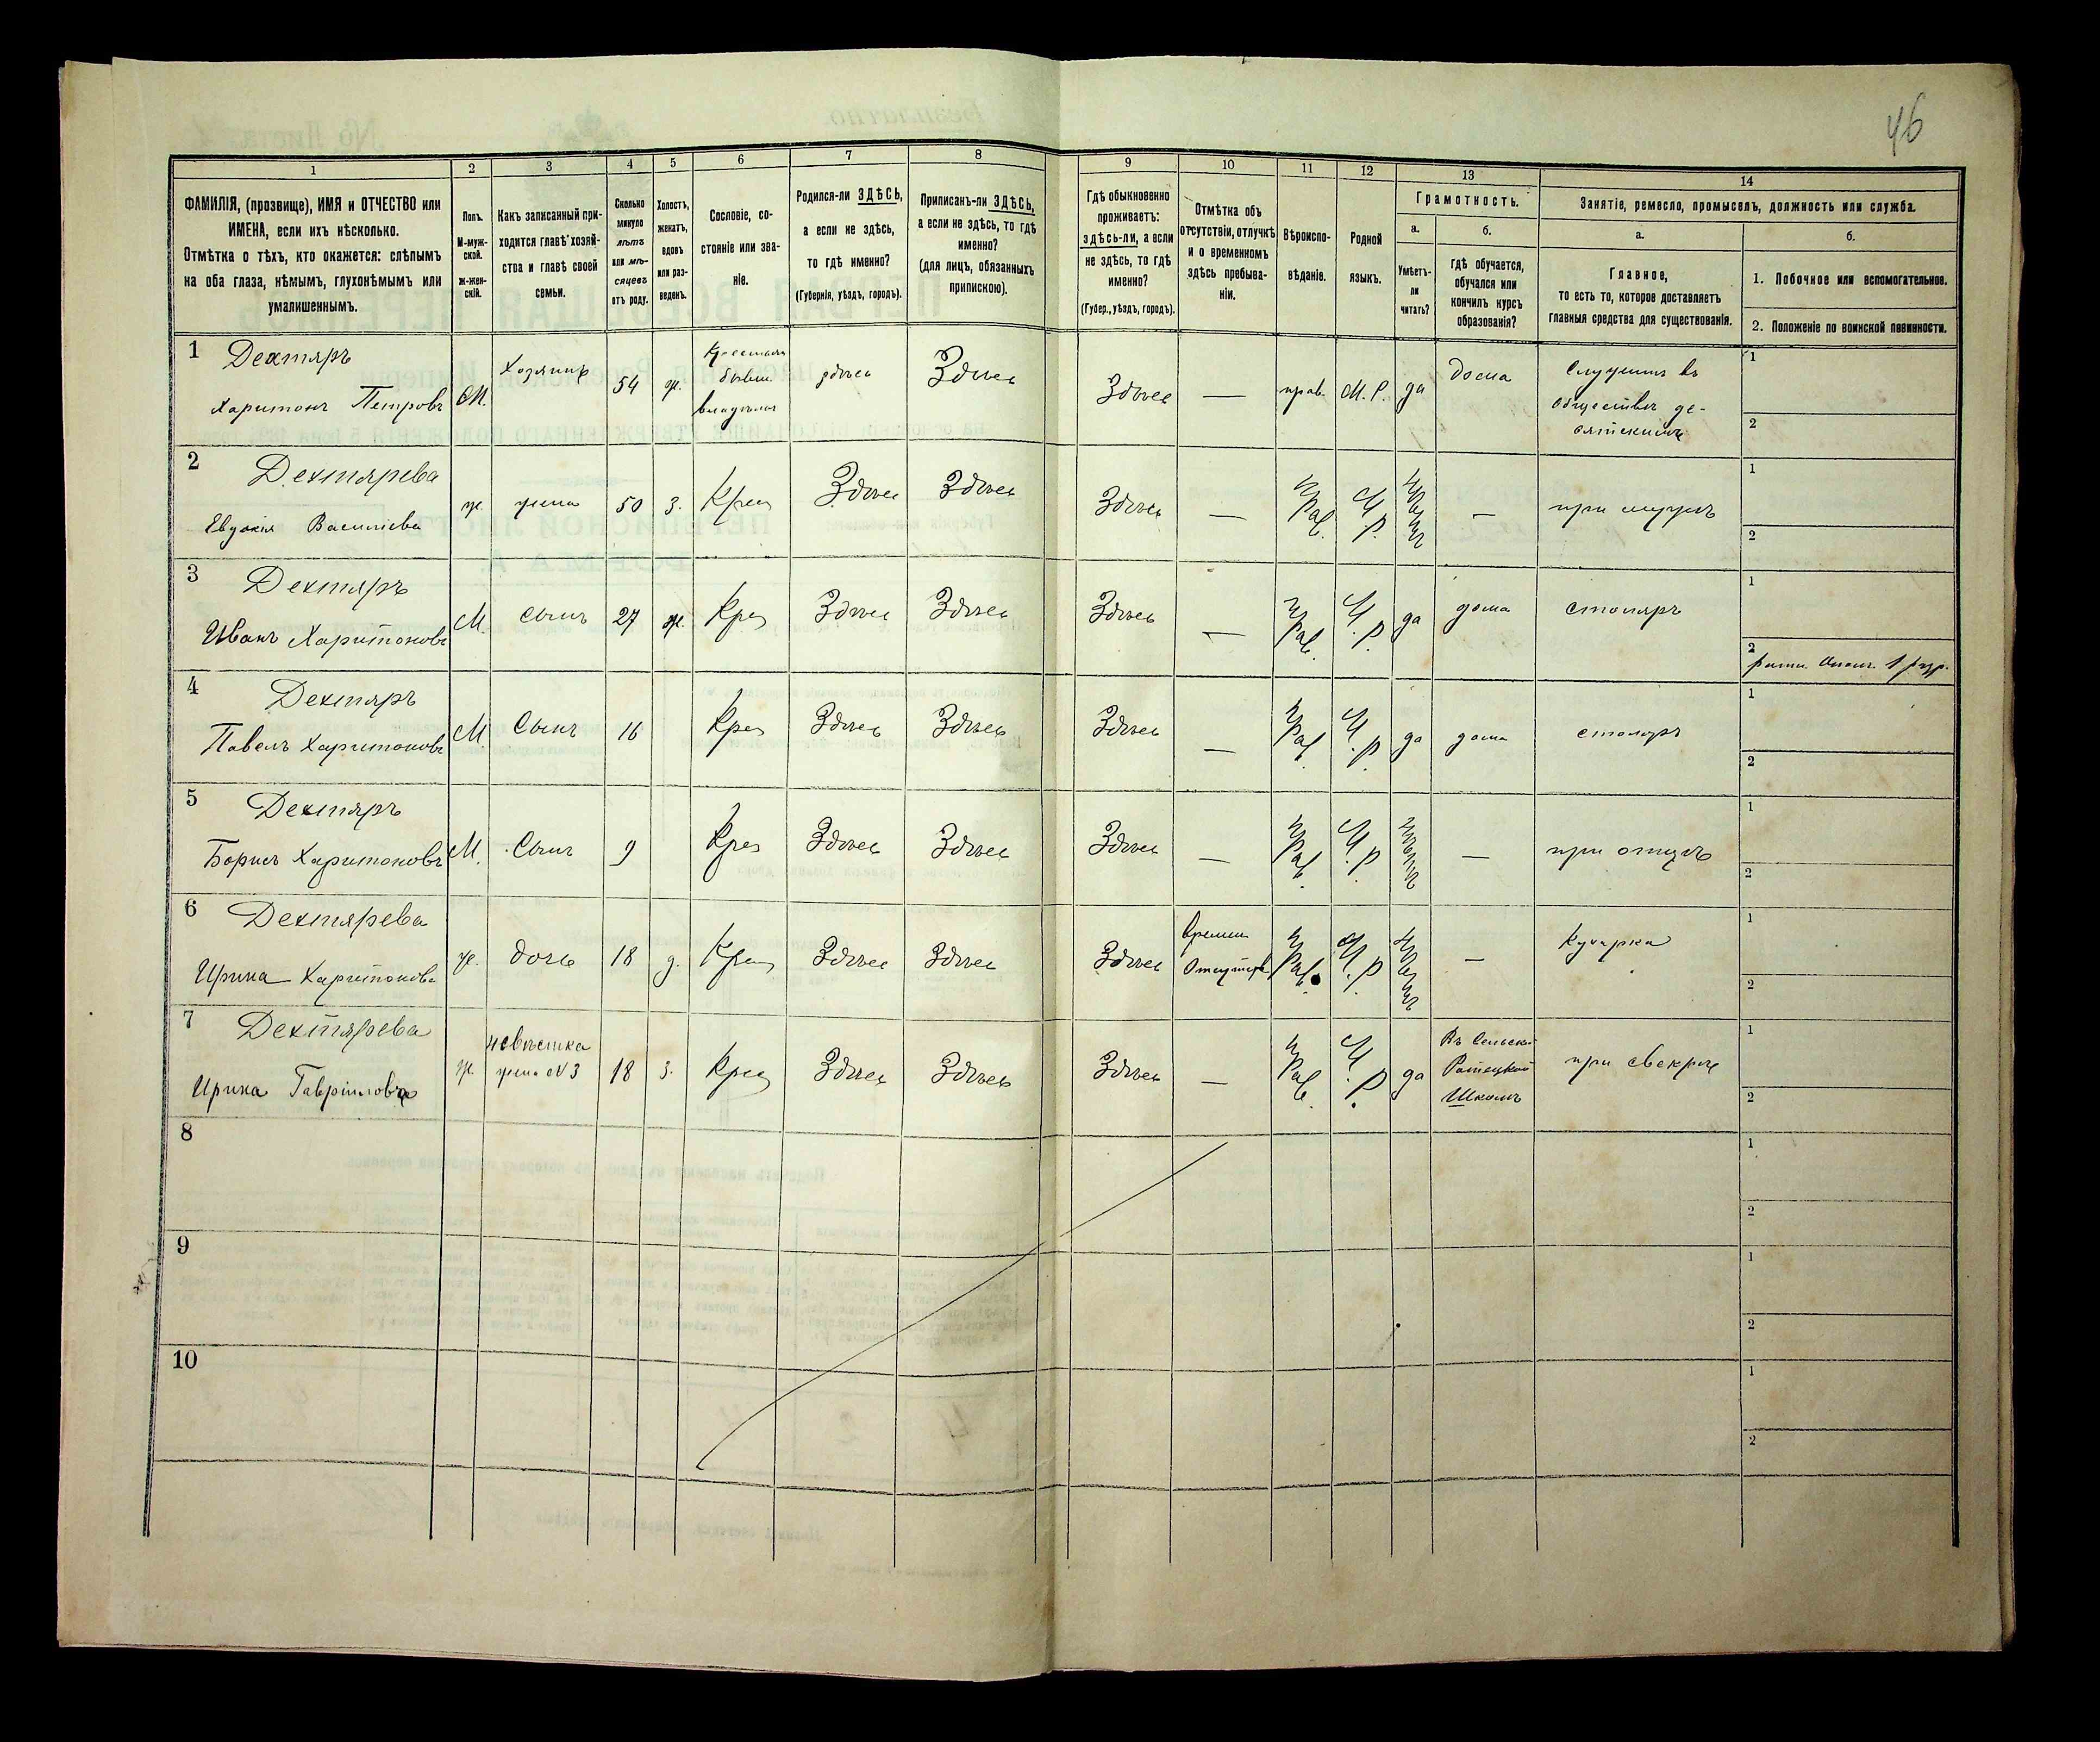 46
1 2 3 4 5 6 7 8 9 10 11 12 13 14
ФАМИЛІЯ, (прозвище), ИМЯ и ОТЧЕСТВО или
ИМЕНА, если ихъ нѣсколько.
Отмѣтка о тѣхъ, кто окажется: слѣпымъ
на оба глаза, нѣмымъ, глухонѣмымъ или
умалишеннымъ.
Полъ.
М-муж-
ской.
Ж-жен-
скій.
Какъ записанный при-
ходится главѣ хозяй-
ства и главѣ своей
семьи.
Сколько
минуло
лѣтъ
или мѣ-
сяцевъ
отъ роду.
Холостъ,
женатъ,
вдовъ
или раз-
веденъ.
Сословіе, со-
стояніе или зва-
ніе.
Родился-ли ЗДѢСЬ,
а если не здѣсь,
то гдѣ именно?
(Губернія, уѣздъ, городъ).
Приписанъ-ли ЗДѢСЬ,
а если не здѣсь, то гдѣ
именно?
(для лицъ, обязанныхъ
припискою).
Гдѣ обыкновенно
проживаетъ:
здѣсь-ли, а если
не здѣсь, то гдѣ
именно?
(Губер., уѣздъ, городъ).
Отмѣтка объ
отсутствіи, отлучкѣ
и о временномъ
здѣсь пребыва-
ніи.
Вѣроиспо-
вѣданіе.
Родной
языкъ.
Грамотность.
а.
Умѣетъ-
ли
читать?
б.
Гдѣ обучается,
обучался или
кончилъ курсъ
образованія?
Занятіе, ремесло, промыселъ, должность или служба.
а.
Главное,
то есть то, которое доставляетъ
главныя средства для существованія.
б.
1. Побочное или вспомогательное.
2. Положеніе по воинской повинности.
1 Дехтяръ
Харитонъ Петровъ
М.
Хозяинъ
54
ж.
Крестьян
бывш.
владѣльч
здѣсь
Здѣсь
Здѣсь
—
прав.
М. Р.
да
дома
Служитъ въ
обществѣ де-
сятскимъ
1
2
2 Дехтярева
Евдокія Васильева
ж.
жена
50
з.
Крес
Здѣсь
Здѣсь
Здѣсь
—
Прав.
М. Р.
нѣтъ
—
при мужѣ
1
2
3 Дехтяръ
Иванъ Харитоновъ
М.
Сынъ
27
ж.
Крес
Здѣсь
Здѣсь
Здѣсь
—
Прав.
М. Р.
да
дома
столяръ
1
2
ратн. Опол. 1 разр.
4 Дехтяръ
Павелъ Харитоновъ
М.
Сынъ
16
Крес
Здѣсь
Здѣсь
Здѣсь
—
Прав.
М. Р.
да
дома
столяръ
1
2
5 Дехтяръ
Борисъ Харитоновъ
М.
Сынъ
9
Крес
Здѣсь
Здѣсь
Здѣсь
—
Прав.
М. Р.
нѣтъ
—
при отцѣ
1
2
6 Дехтярева
Ирина Харитонова
ж.
дочь
18
д.
Крес
Здѣсь
Здѣсь
Здѣсь
времен
Отсутств
Прав.
М. Р.
нѣтъ
—
Кухарка
1
2
7 Дехтярева
Ирина Гаврілова
ж.
невѣстка
жена №3
18
з.
Крес
Здѣсь
Здѣсь
Здѣсь
—
Прав.
М. Р.
да
Въ Сельской
Школѣ
при свекрѣ
1
2
8
1
2
9
1
2
10
1
2